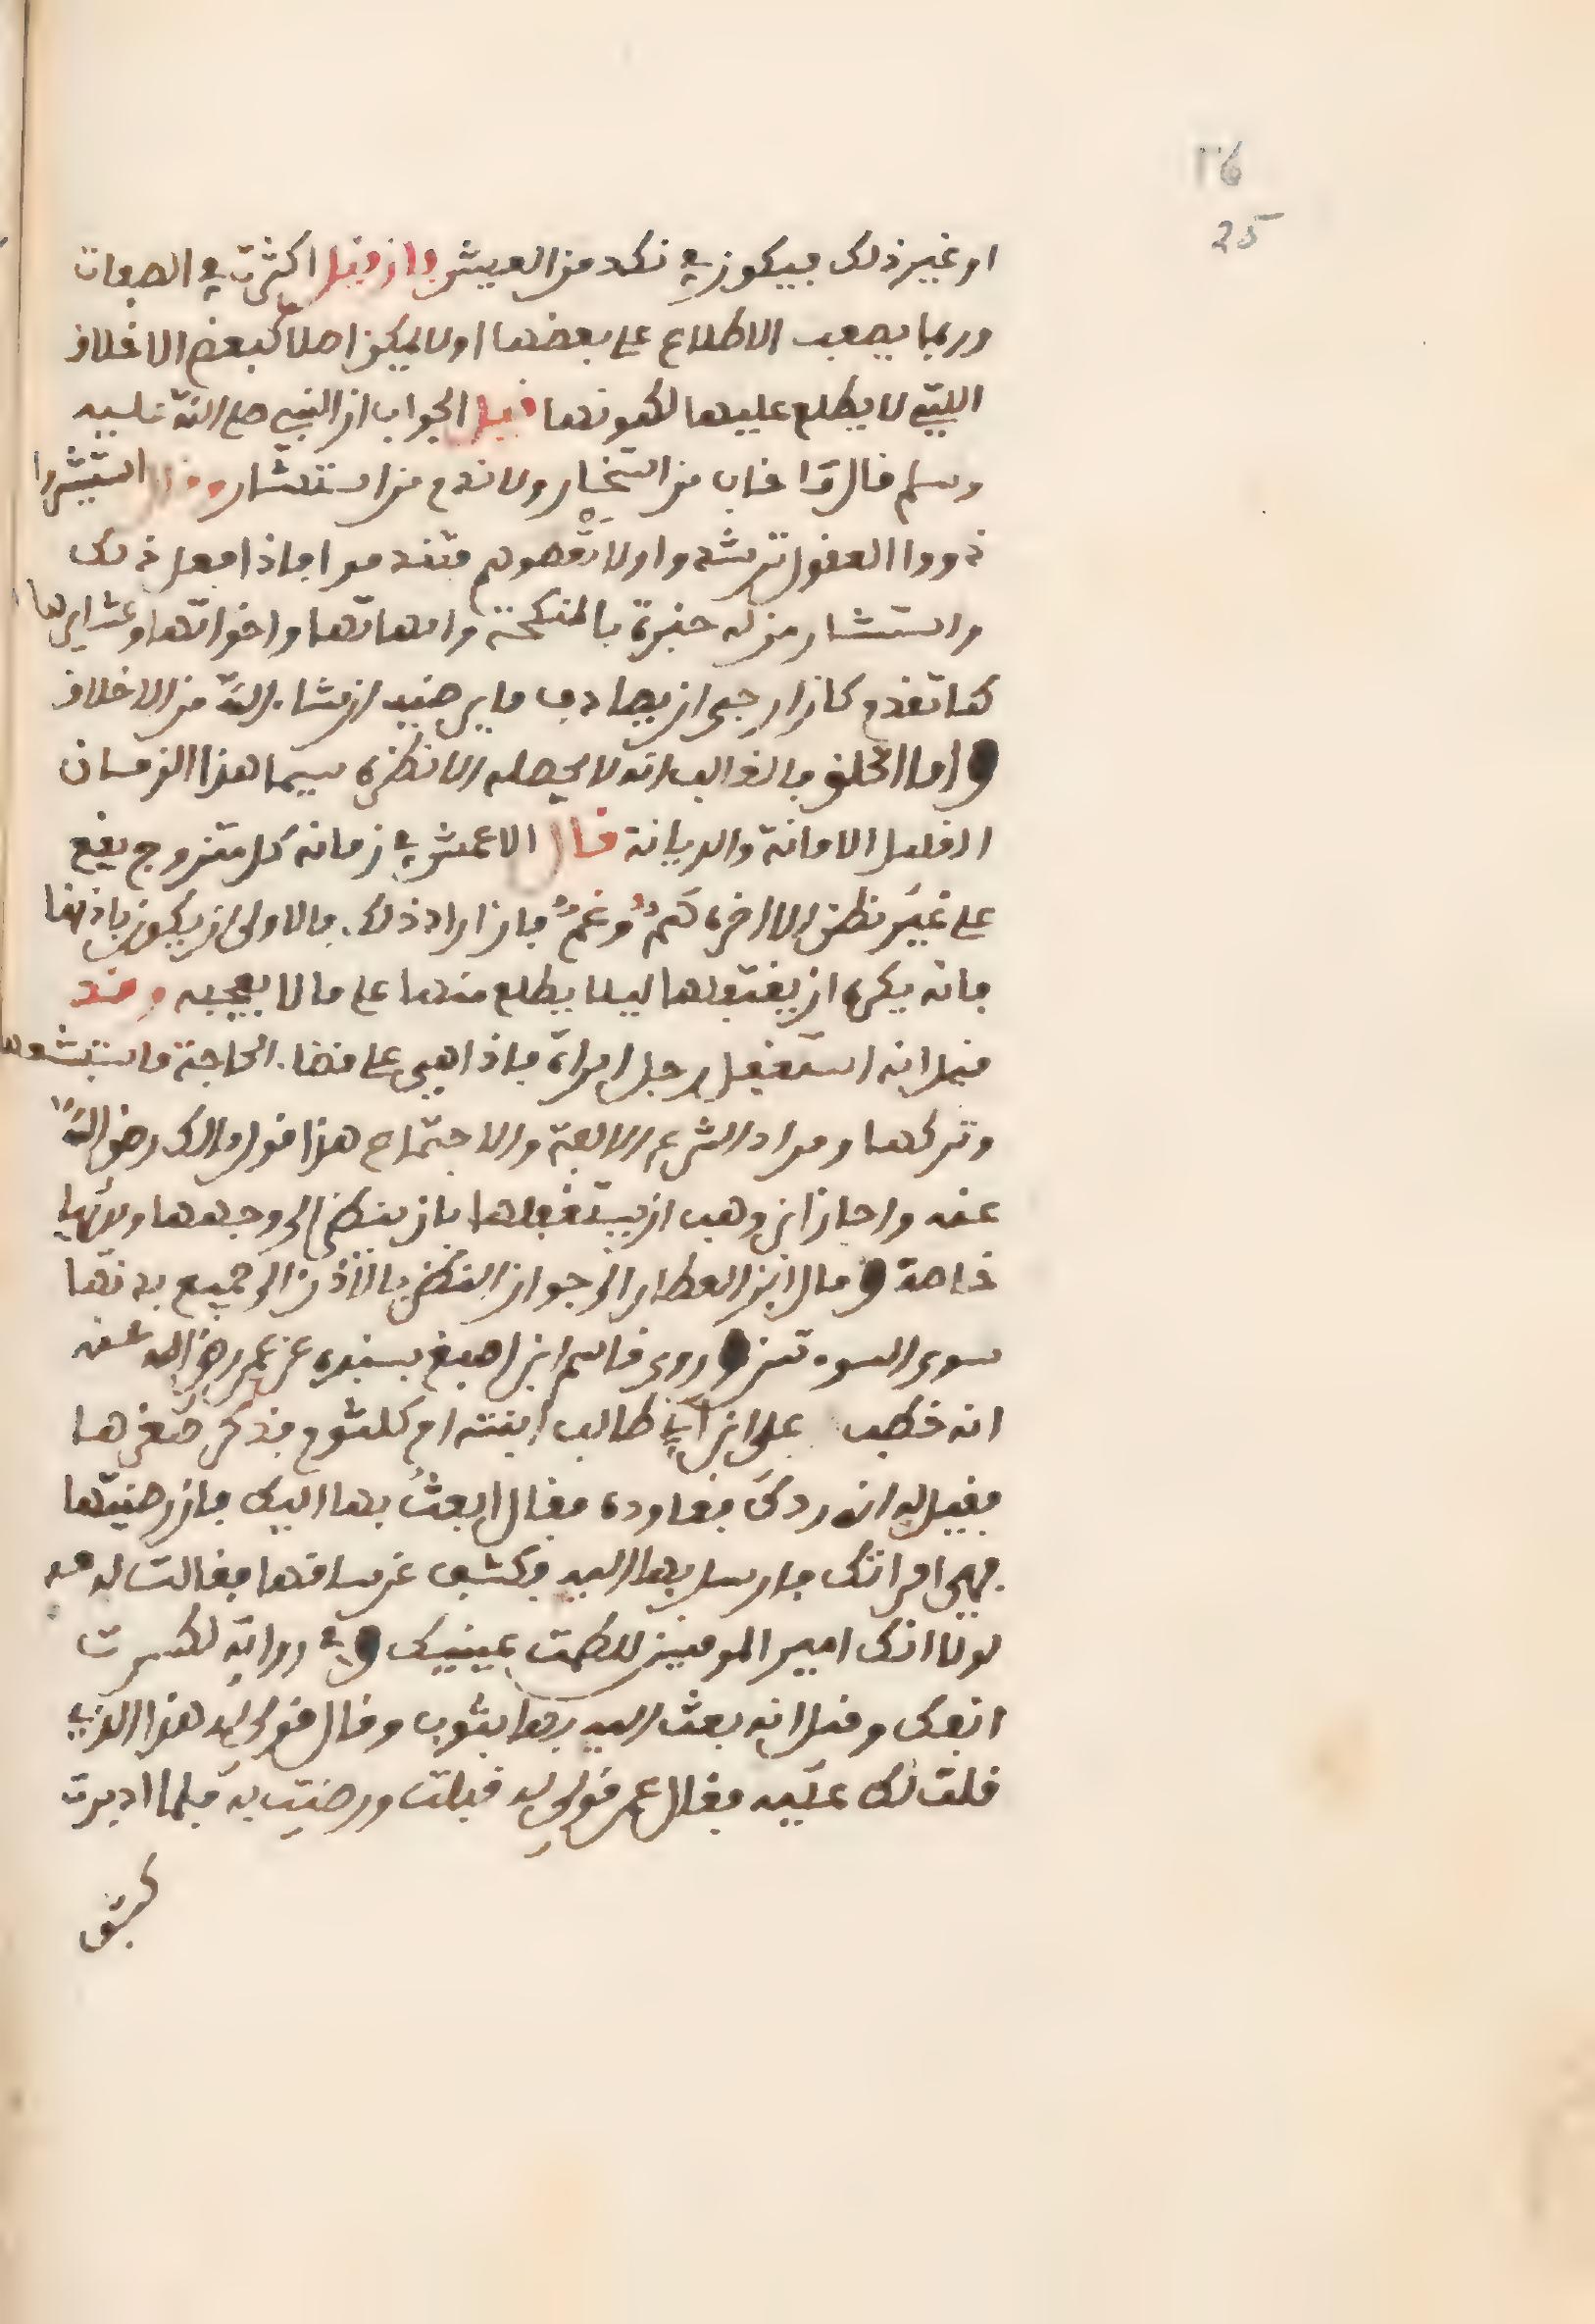 ٢٦
25
او غير ذلك فيكون في نكد من العيش فان قيل اكثرت في الصفات
وربما يصعب الاطلاع على بعضها او لا يمكن اصلا كبعض الاخلاق
التي لا يطلع عليها لكونها قيل الجواب ان النبي صلى الله عليه
وسلم قال ما خاب من استخار ولا ندم من استشار وقال استشيروا
ذووا العقول ترشدوا ولا تعصوهم فتندموا فاذا فعل ذلك
واستشار من له خبرة بالمنكحة وامهاتها واخواتها وعشايرها
كما تقدم كان ارجى ان يصادف ما يرضيه ان شاء الله من الاخلاق
واما الخلق فالغالب انه لا يحصله الا نظره سيما هذا الزمان
القليل الامانة والديانة قال الاعمش في زمانه كل متزوج يقع
على غير نظر الا اخره هم وغم فان اراد ذلك فالاولى ان يكون باذنها
فانه يكره ان يغتفلها ليلا يطلع منها على ما لا يعجبه وقد
قيل انه استغفل رجل امراة فاذا هي على قضاء الحاجة فاستبشعها
وتركها ومراد الشرع الالفة والاجتماع هذا قول مالك رضي الله
عنه واجاز ابن وهب ان يستغفلها بان ينظر الى وجهها ويديها
خاصة ومال ابن العطار الى جواز النظر بالاذن الى جميع بدنها
سوى السوءتين وروى قاسم ابن اصبغ بسنده عن عمر رضي الله عنه
انه خطب على ابن ابي طالب ابنته ام كلثوم فذكر صغرها
فقيل له انه ردك فعاوده فقال ابعث بها اليك فان رضيتها
فهي امراتك فارسل بها اليه فكشف عن ساقها فقالت له مه
لولا انك امير المومنين للطمت عينيك وفي رواية لكسرت
انفك وقيل انه بعث اليه بها بثوب وقال قولي له هذا الذي
قلت لك عليه فقال عمر قولي له قبلت ورضيت به فلما ادبرت
كشف